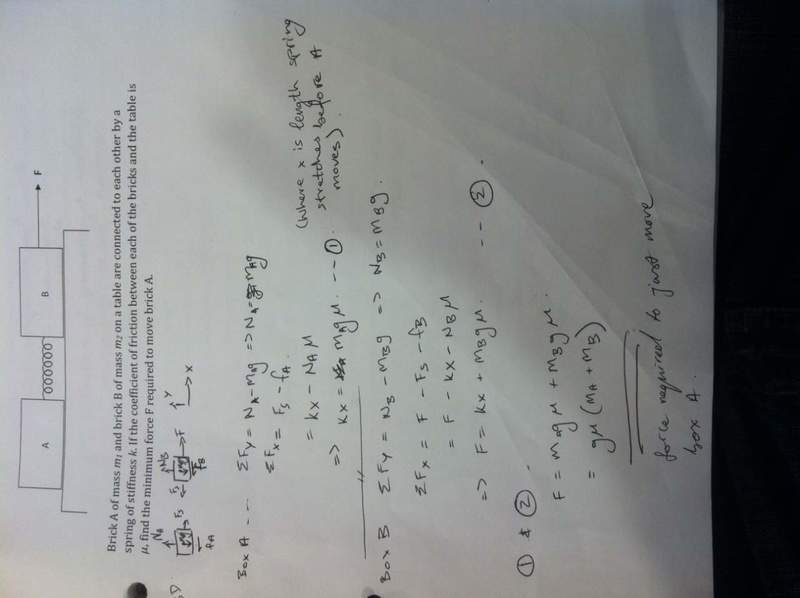 A
B
F
Brick A of mass m₁ and brick B of mass m₂ on a table are connected to each other by a
spring of stiffness k. If the coefficient of friction between each of the bricks and the table is
μ, find the minimum force F required to move brick A.
N_A
F_S
f_A
F_S
N_B
F
f_B
Y
X
Box A -- ΣFy = N_A - m_A g => N_A = m_A g
ΣFx = F_S - f_A.
= kx - N_A μ
(where x is length spring
stretches before A
moves).
=> kx = m_A g μ. -- ①.
Box B ΣFy = N_B - m_B g => N_B = m_B g.
ΣFx = F - F_S - f_B
= F - kx - N_B μ
=> F = kx + m_B g μ. -- ②.
① & ②.
F = m_A g μ + m_B g μ.
= gμ (m_A + m_B)
force required to just move
box A.